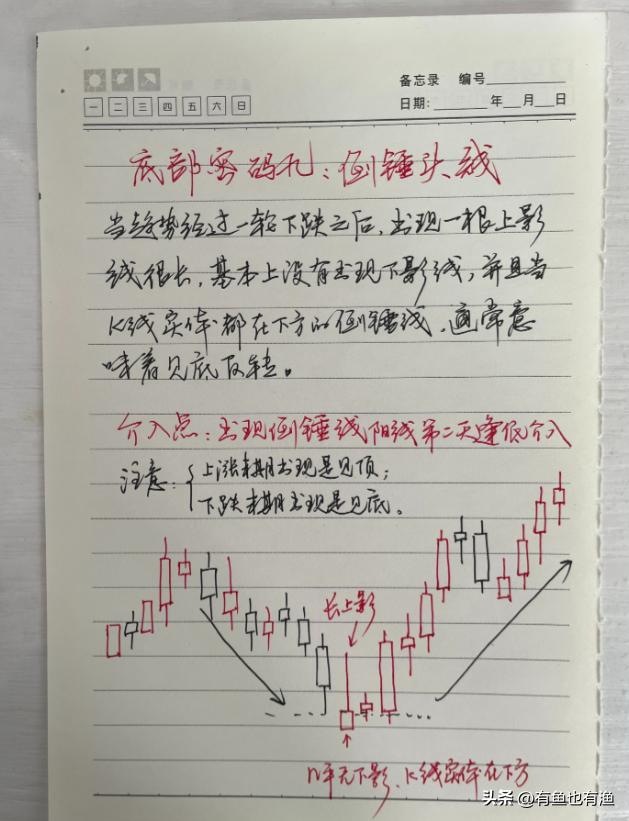 备忘录 编号
一 二 三 四 五 六 日
日期: 年 月 日
底部密码九:倒锤头线
当趋势经过一轮下跌之后,出现一根上影
线很长,基本上没有出现下影线,并且当
K线实体都在下方的倒锤线,通常意
味着见底反转。
介入点:出现倒锤线阳线第二天逢低介入
注意:{上涨末期出现是见顶;
下跌末期出现是见底。
长上影
几乎无下影、K线实体在下方
头条 @有鱼也有渔